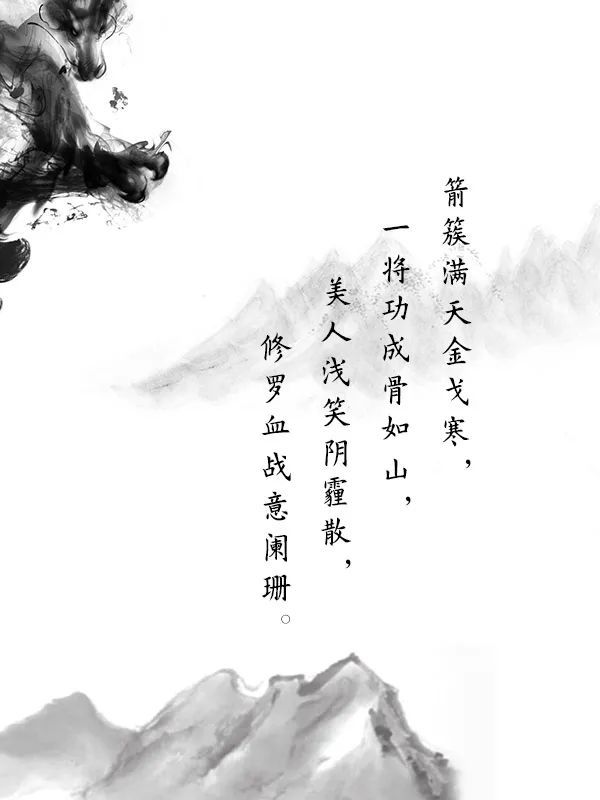 箭簇满天金戈寒，
一将功成骨如山，
美人浅笑阴霾散，
修罗血战意阑珊。